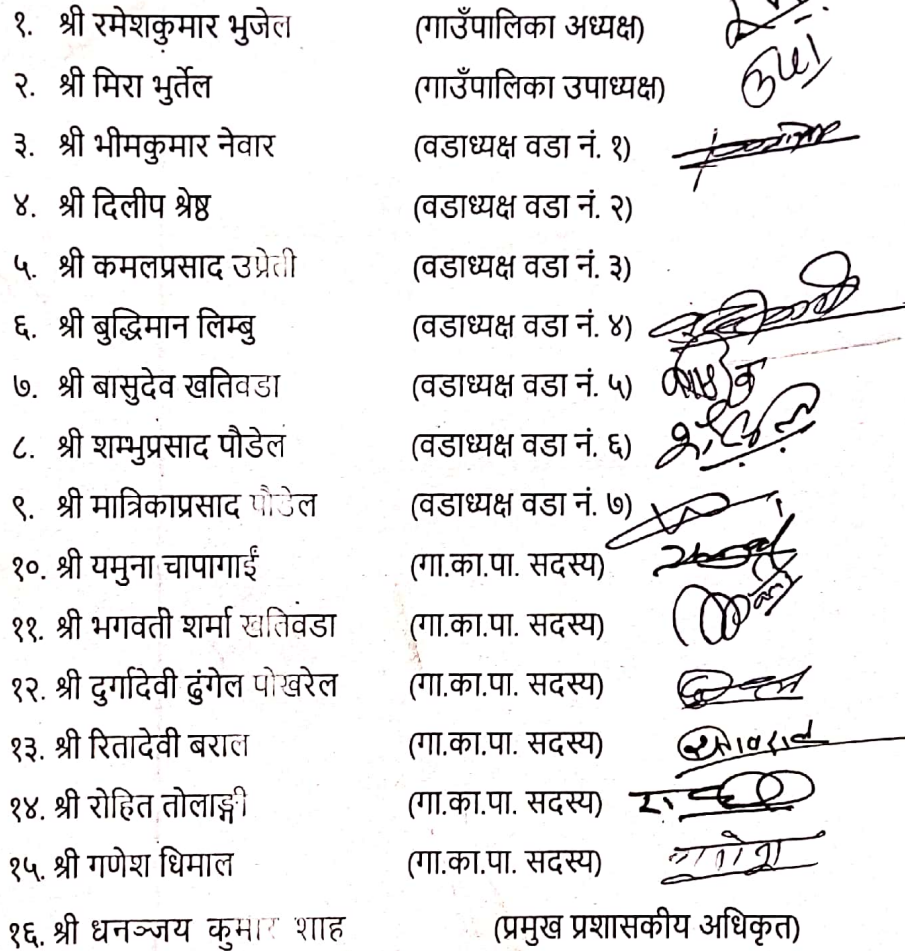 १. श्री रमेशकुमार भुजेल (गाउँपालिका अध्यक्ष)
२. श्री मिरा भुर्तेल (गाउँपालिका उपाध्यक्ष)
३. श्री भीमकुमार नेवार (वडाध्यक्ष वडा नं. १)
४. श्री दिलीप श्रेष्ठ (वडाध्यक्ष वडा नं. २)
५. श्री कमलप्रसाद उप्रेती (वडाध्यक्ष वडा नं. ३)
६. श्री बुद्धिमान लिम्बु (वडाध्यक्ष वडा नं. ४)
७. श्री बासुदेव खतिवडा (वडाध्यक्ष वडा नं. ५)
८. श्री शम्भुप्रसाद पौडेल (वडाध्यक्ष वडा नं. ६)
९. श्री मात्रिकाप्रसाद पौडेल (वडाध्यक्ष वडा नं. ७)
१०. श्री यमुना चापागाईं (गा.का.पा. सदस्य)
११. श्री भगवती शर्मा खतिवडा (गा.का.पा. सदस्य)
१२. श्री दुर्गादेवी ढुंगेल पोखरेल (गा.का.पा. सदस्य)
१३. श्री रितादेवी बराल (गा.का.पा. सदस्य)
१४. श्री रोहित तोलाङ्गी (गा.का.पा. सदस्य)
१५. श्री गणेश धिमाल (गा.का.पा. सदस्य)
१६. श्री धनञ्जय कुमार शाह (प्रमुख प्रशासकीय अधिकृत)